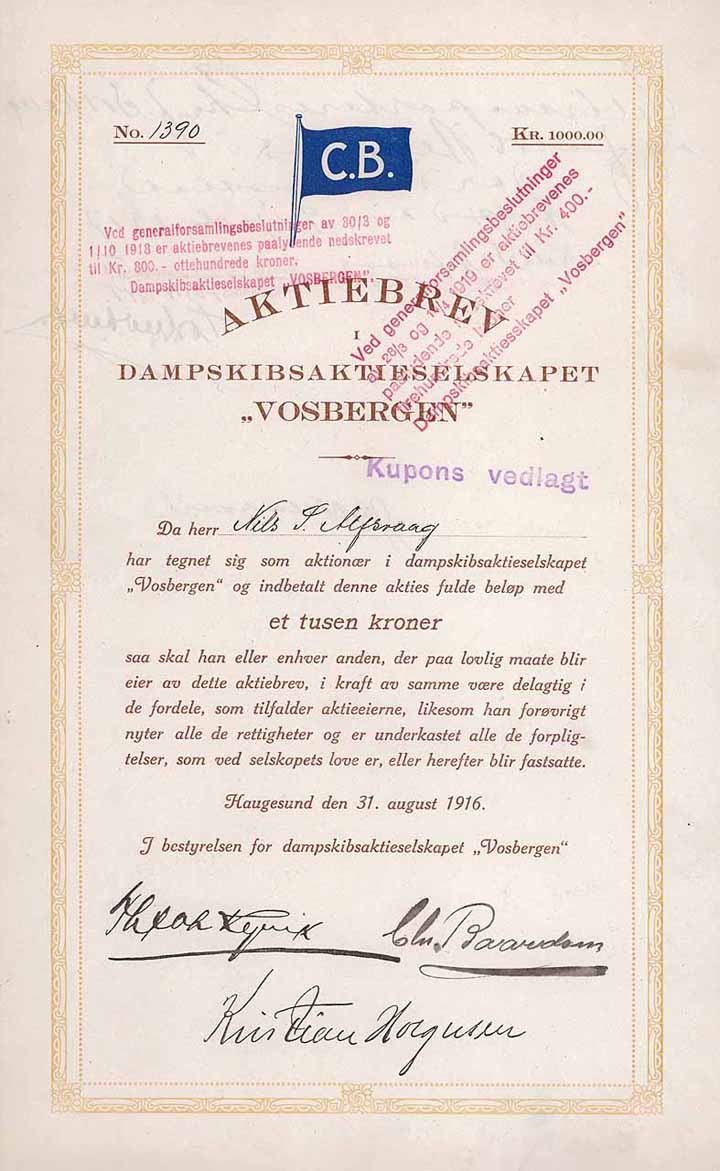 No. 1390
C.B.
KR. 1000.00
Ved generalforsamlingsbeslutninger av 30/3 og
1/10 1918 er aktiebrevenes paalydende nedskrevet
til Kr. 800.- ottehundrede kroner.
Dampskibsaktieselskapet „VOSBERGEN".
Ved generalforsamlingsbeslutninger
av 28/3 og 1919 er aktiebrevenes
paalydende nedskrevet til Kr. 400.-
firehundrede kroner
Dampskibsaktiesskapet „Vosbergen"
AKTIEBREV
I
DAMPSKIBSAKTIESELSKAPET
„VOSBERGEN”
Kupons vedlagt
Da herr Nils
har tegnet sig som aktionær i dampskibsaktieselskapet
„Vosbergen“ og indbetalt denne akties fulde beløp med
et tusen kroner
saa skal han eller enhver anden, der paa lovlig maate blir
eier av dette aktiebrev, i kraft av samme være delagtig i
de fordele, som tilfalder aktieeierne, likesom han forøvrigt
nyter alle de rettigheter og er underkastet alle de forplig-
telser, som ved selskapets love er, eller herefter blir fastsatte.
Haugesund den 31. august 1916.
I bestyrelsen for dampskibsaktieselskapet „Vosbergen“
Chr.
Kristian